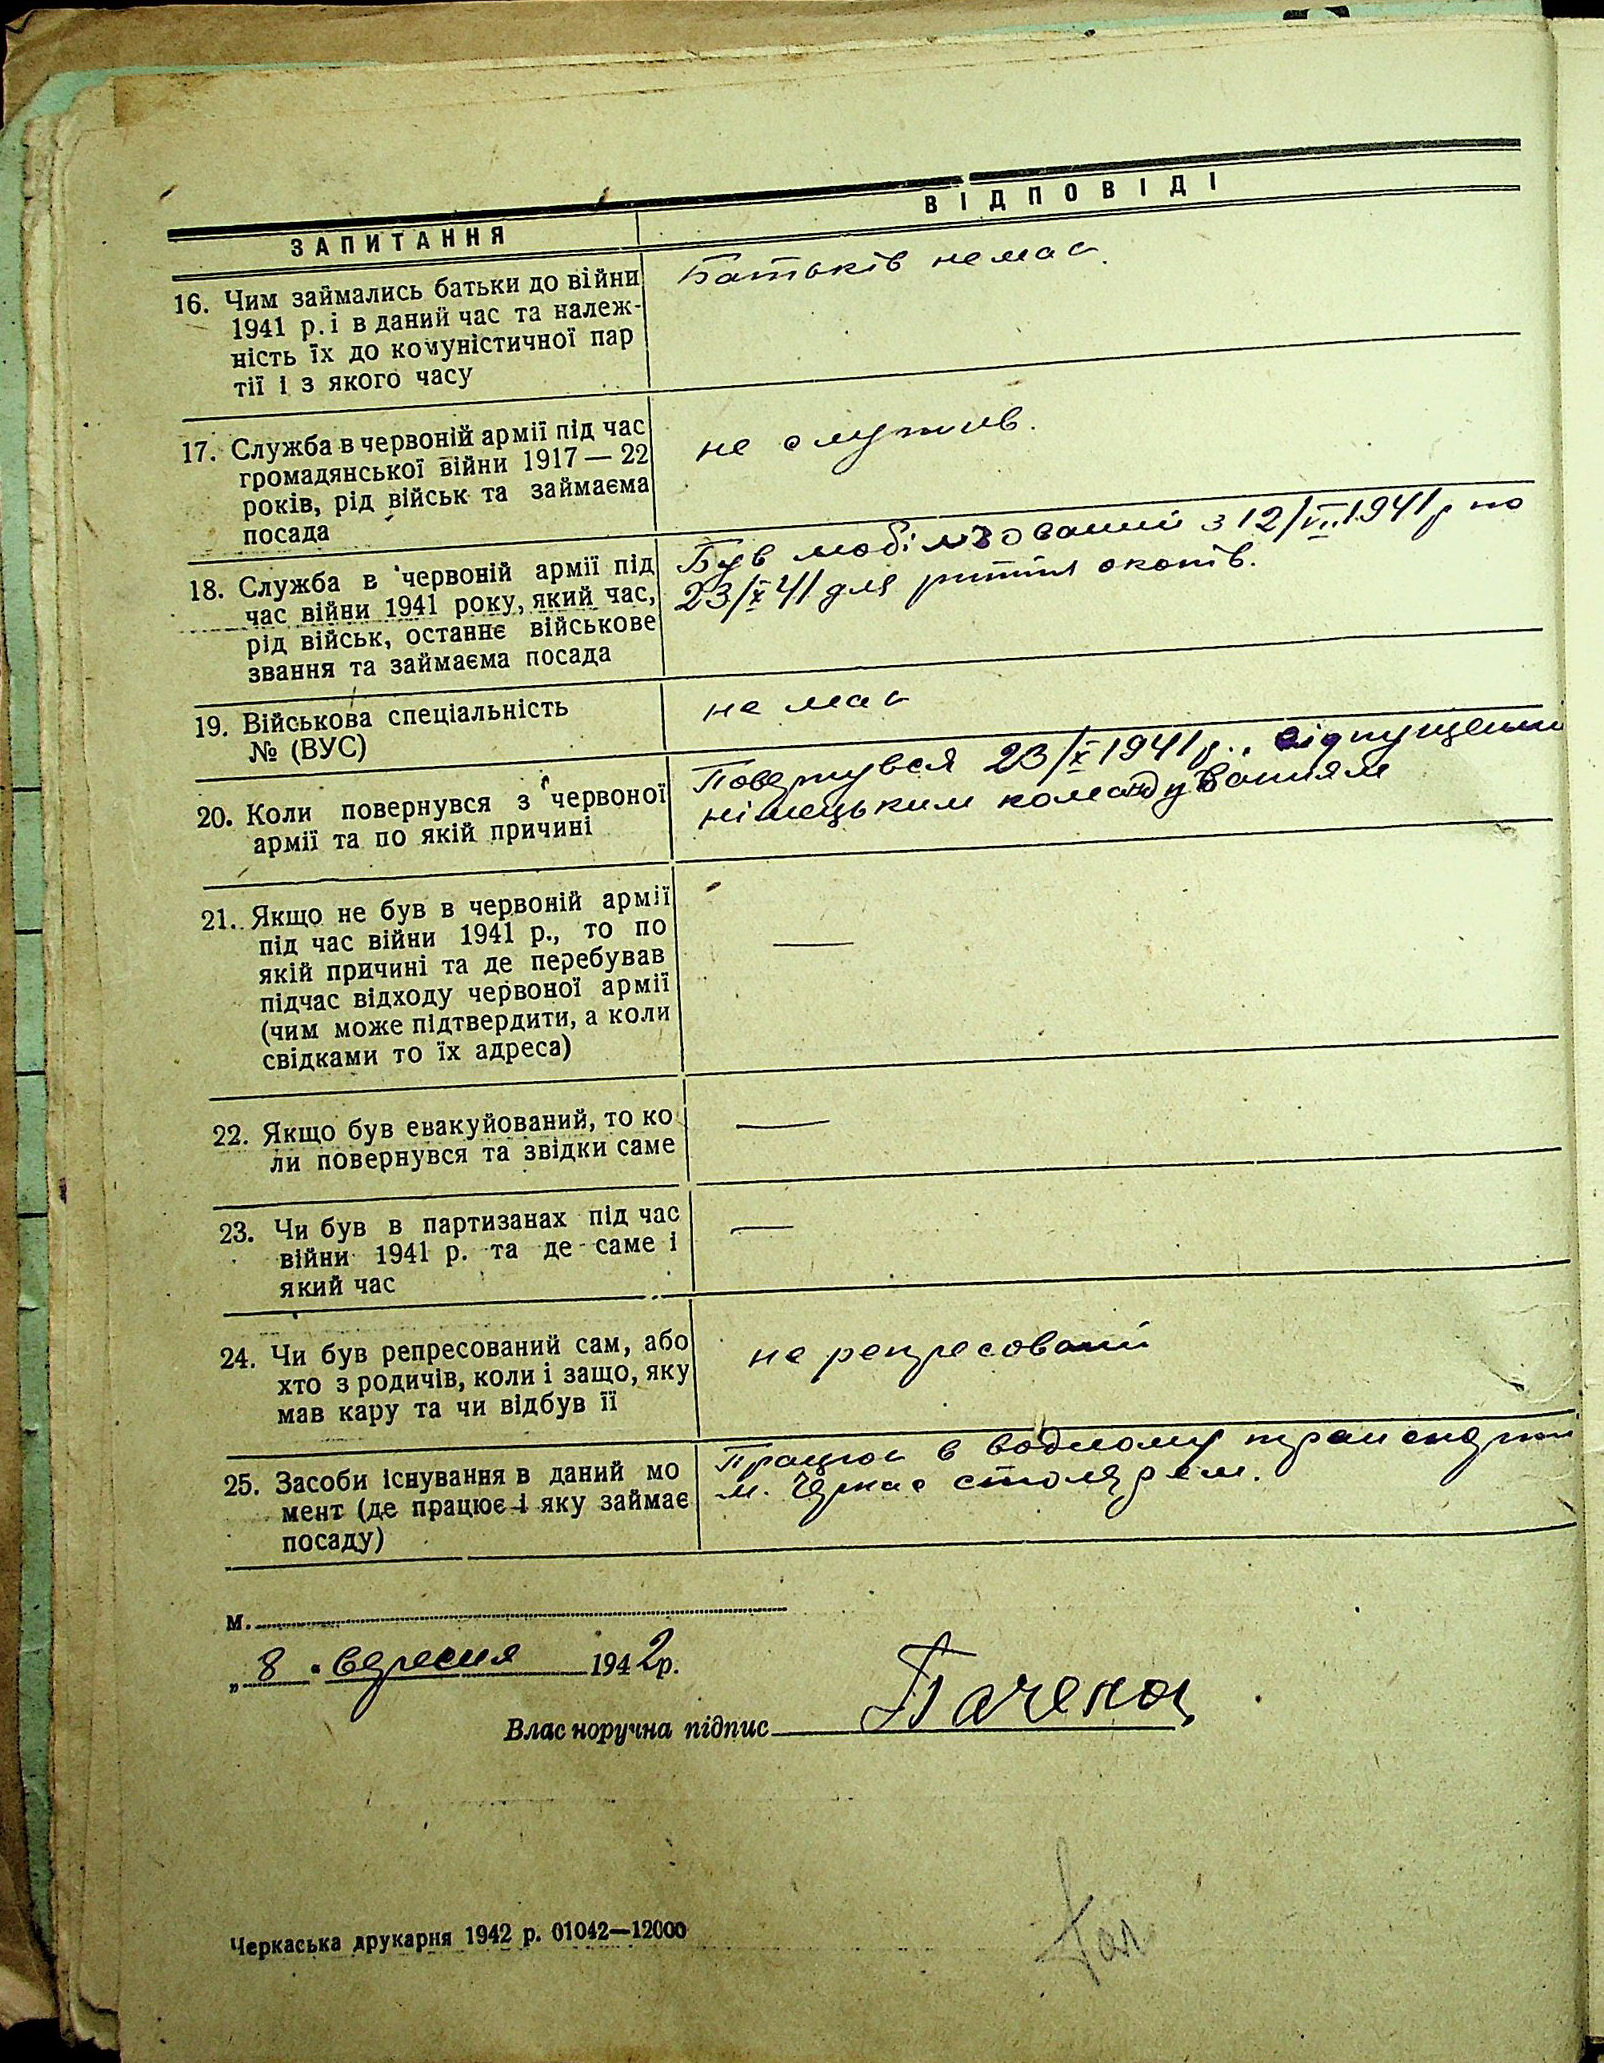 ЗАПИТАННЯ
ВІДПОВІДІ
16. Чим займались батьки до війни
1941 р. і в даний час та належ-
ність їх до комуністичної пар
тії і з якого часу
Батьків немає.
17. Служба в червоній армії під час
громадянської війни 1917—22
років, рід військ та займаєма
посада
не служив.
18. Служба в червоній армії під
час війни 1941 року, який час,
рід військ, останнє військове
звання та займаєма посада
Був мобілізований з 12/VII.1941 р по
23/X 41 для риття окопів.
19. Військова спеціальність
№ (ВУС)
не має
20. Коли повернувся з червоної
армії та по якій причині
Повернувся 23/X 1941 р., відпущений
німецьким командуванням
21. Якщо не був в червоній армії
під час війни 1941 р., то по
якій причині та де перебував
підчас відходу червоної армії
(чим може підтвердити, а коли
свідками то їх адреса)
—
22. Якщо був евакуйований, то ко
ли повернувся та звідки саме
—
23. Чи був в партизанах під час
війни 1941 р. та де саме і
який час
—
24. Чи був репресований сам, або
хто з родичів, коли і защо, яку
мав кару та чи відбув її
не репресований
25. Засоби існування в даний мо
мент (де працює і яку займає
посаду)
Працює в водному транспорті
м. Черкас столяром.
м.
„8" вересня 1942р.
Власноручна підпис
Черкаська друкарня 1942 р. 01042—12000